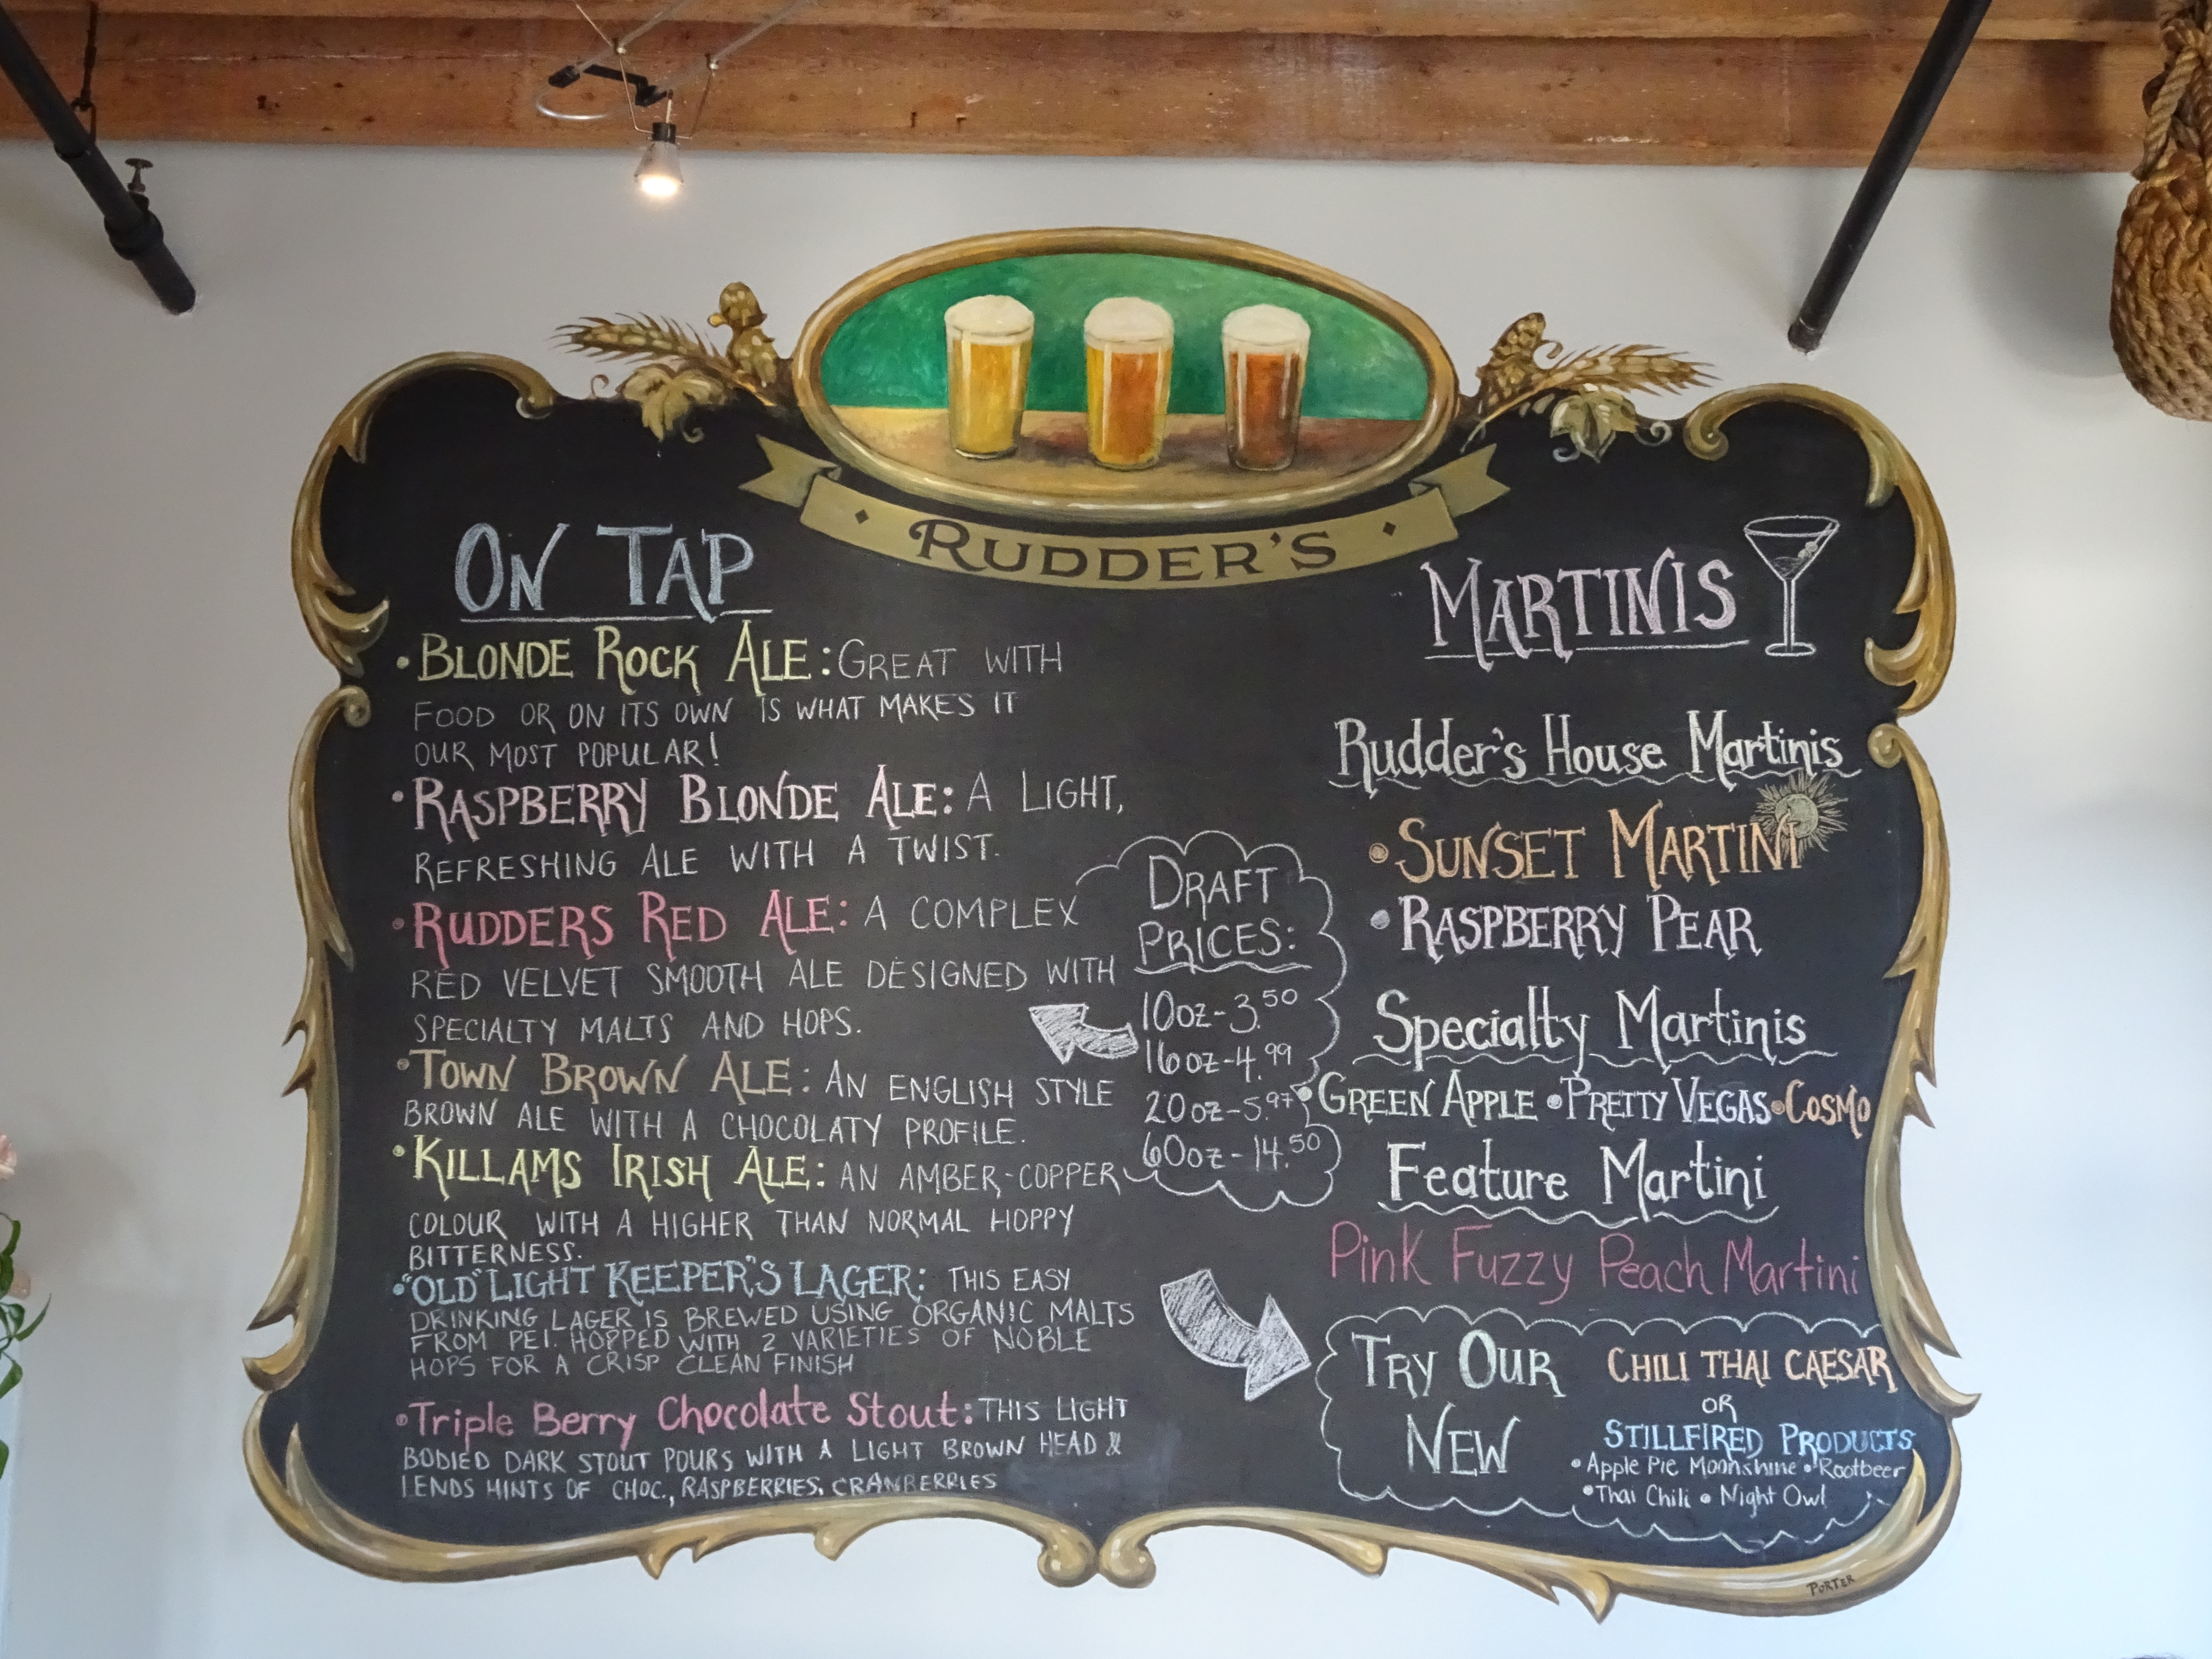 RUDDER'S
ON TAP
• BLONDE ROCK ALE: GREAT WITH
FOOD OR ON ITS OWN IS WHAT MAKES IT
OUR MOST POPULAR!
• RASPBERRY BLONDE ALE: A LIGHT,
REFRESHING ALE WITH A TWIST.
• RUDDERS RED ALE: A COMPLEX
RED VELVET SMOOTH ALE DESIGNED WITH
SPECIALTY MALTS AND HOPS.
• TOWN BROWN ALE: AN ENGLISH STYLE
BROWN ALE WITH A CHOCOLATY PROFILE.
• KILLAMS IRISH ALE: AN AMBER-COPPER
COLOUR WITH A HIGHER THAN NORMAL HOPPY
BITTERNESS.
• "OLD" LIGHT KEEPER'S LAGER: THIS EASY
DRINKING LAGER IS BREWED USING ORGANIC MALTS
FROM PEI. HOPPED WITH 2 VARIETIES OF NOBLE
HOPS FOR A CRISP CLEAN FINISH
• Triple Berry Chocolate Stout: THIS LIGHT
BODIED DARK STOUT POURS WITH A LIGHT BROWN HEAD &
LENDS HINTS OF CHOC., RASPBERRIES, CRANBERRIES
DRAFT
PRICES:
10oz-3.50
16oz-4.99
20oz-5.97
60oz-14.50
MARTINIS
Rudder's House Martinis
• SUNSET MARTINI
• RASPBERRY PEAR
Specialty Martinis
• GREEN APPLE • PRETTY VEGAS • COSMO
Feature Martini
Pink Fuzzy Peach Martini
TRY OUR
NEW
CHILI THAI CAESAR
OR
STILLFIRED PRODUCTS
• Apple Pie Moonshine • Rootbeer
• Thai Chili • Night Owl
PORTER